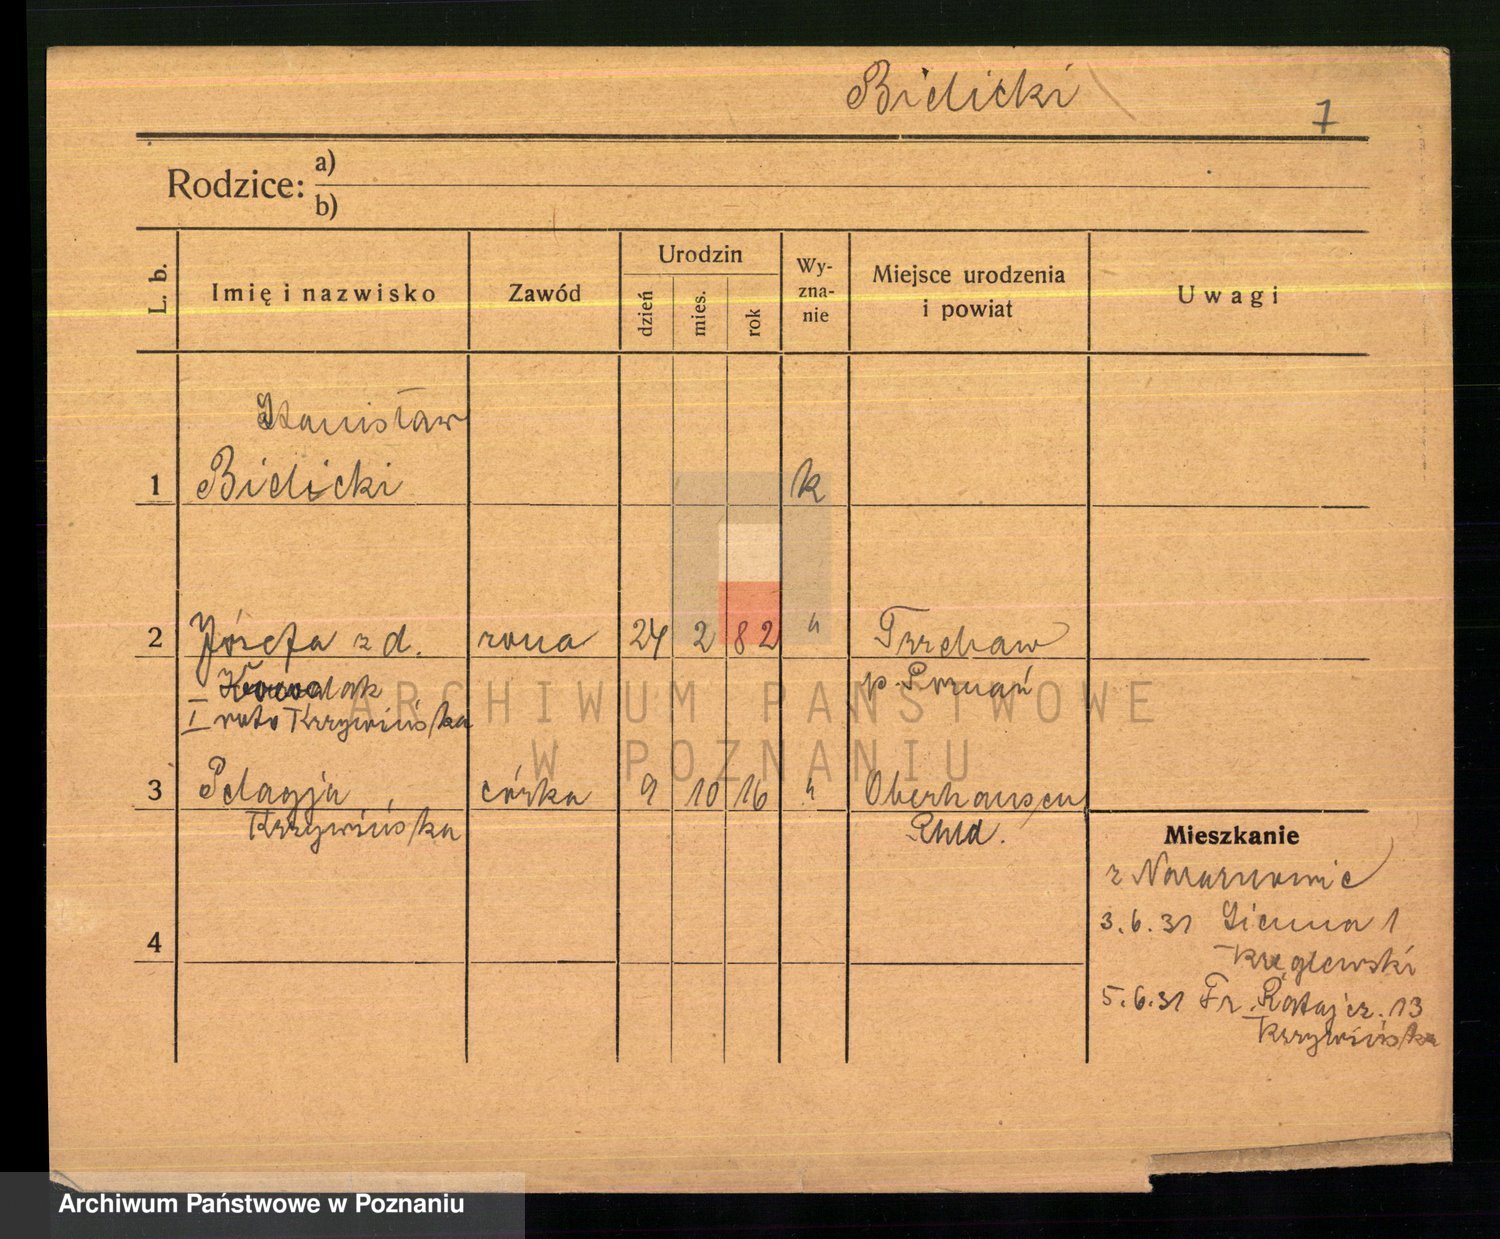 Bielicki
7
Rodzice: a)
b)
L. b.
Imię i nazwisko
Zawód
Urodzin
dzień
mies.
rok
Wy-
zna-
nie
Miejsce urodzenia
i powiat
Uwagi
Stanisław
1 Bielicki k
2 Józefa z d. żona 24 2 82 "
Kowalak p. Poznań
I voto Krzywińska
3 Pelagja córka 9 10 16 " Oberhausen
Krzywińska Rhld.
Mieszkanie
z
3.6.31 Sienna 1
Kręglewski
4
5.6.31 Fr. Ratajcz. 13
Krzywińska
ARCHIWUM PAŃSTWOWE
W POZNANIU
Archiwum Państwowe w Poznaniu